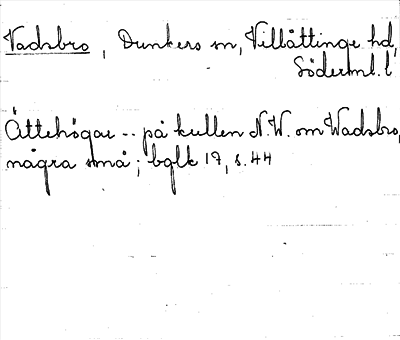 Vadsbro, Dunkers sn, Villåttinge hd,
Söderml. l
Ättehögar -- på kullen N.W. om Wadsbro,
några små; bglk 17, s. 44